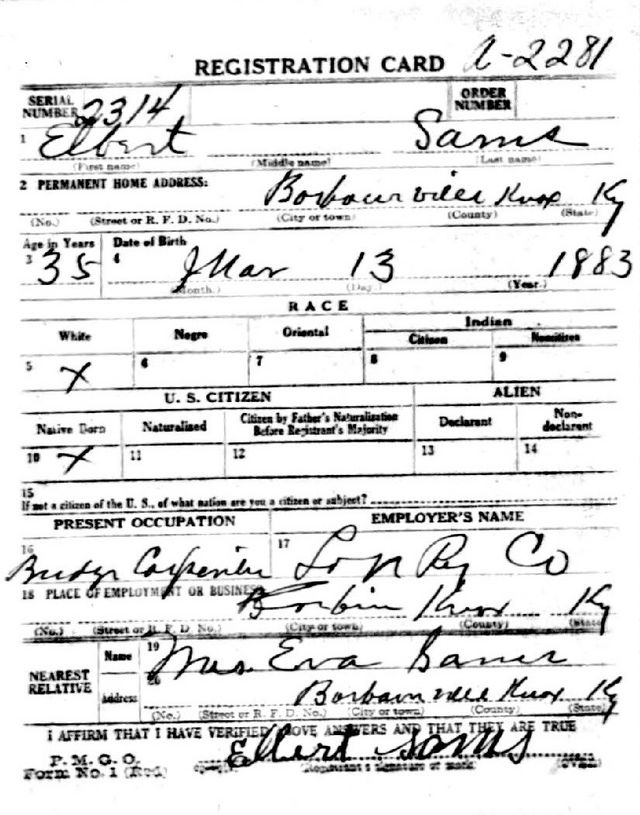 REGISTRATION CARD A-2281
SERIAL NUMBER 2314 ORDER NUMBER
1 Elbert Sams
(First name) (Middle name) (Last name)
2 PERMANENT HOME ADDRESS: Barbourville Knox Ky
(No.) (Street or R. F. D. No.) (City or town) (County) (State)
Age in Years Date of Birth
3 35 4 Mar 13 1883
(Month.) (Day.) (Year.)
RACE
White Negro Oriental Indian
Citizen Noncitizen
5 X 6 7 8 9
U. S. CITIZEN ALIEN
Native Born Naturalized Citizen by Father's Naturalization Before Registrant's Majority Declarant Non-declarant
10 X 11 12 13 14
15
If not a citizen of the U. S., of what nation are you a citizen or subject?
PRESENT OCCUPATION EMPLOYER'S NAME
16 Bridge Carpenter 17 L & N Ry Co
18 PLACE OF EMPLOYMENT OR BUSINESS: Corbin Knox Ky
(No.) (Street or R. F. D. No.) (City or town) (County) (State)
NEAREST RELATIVE Name 19 Mrs. Eva Sams
Address 20 Barbourville Knox Ky
(No.) (Street or R. F. D. No.) (City or town) (County) (State)
I AFFIRM THAT I HAVE VERIFIED ABOVE ANSWERS AND THAT THEY ARE TRUE
P. M. G. O.
Form No. 1 (Red) Elbert Sams
(Registrant's signature or mark) (OVER)